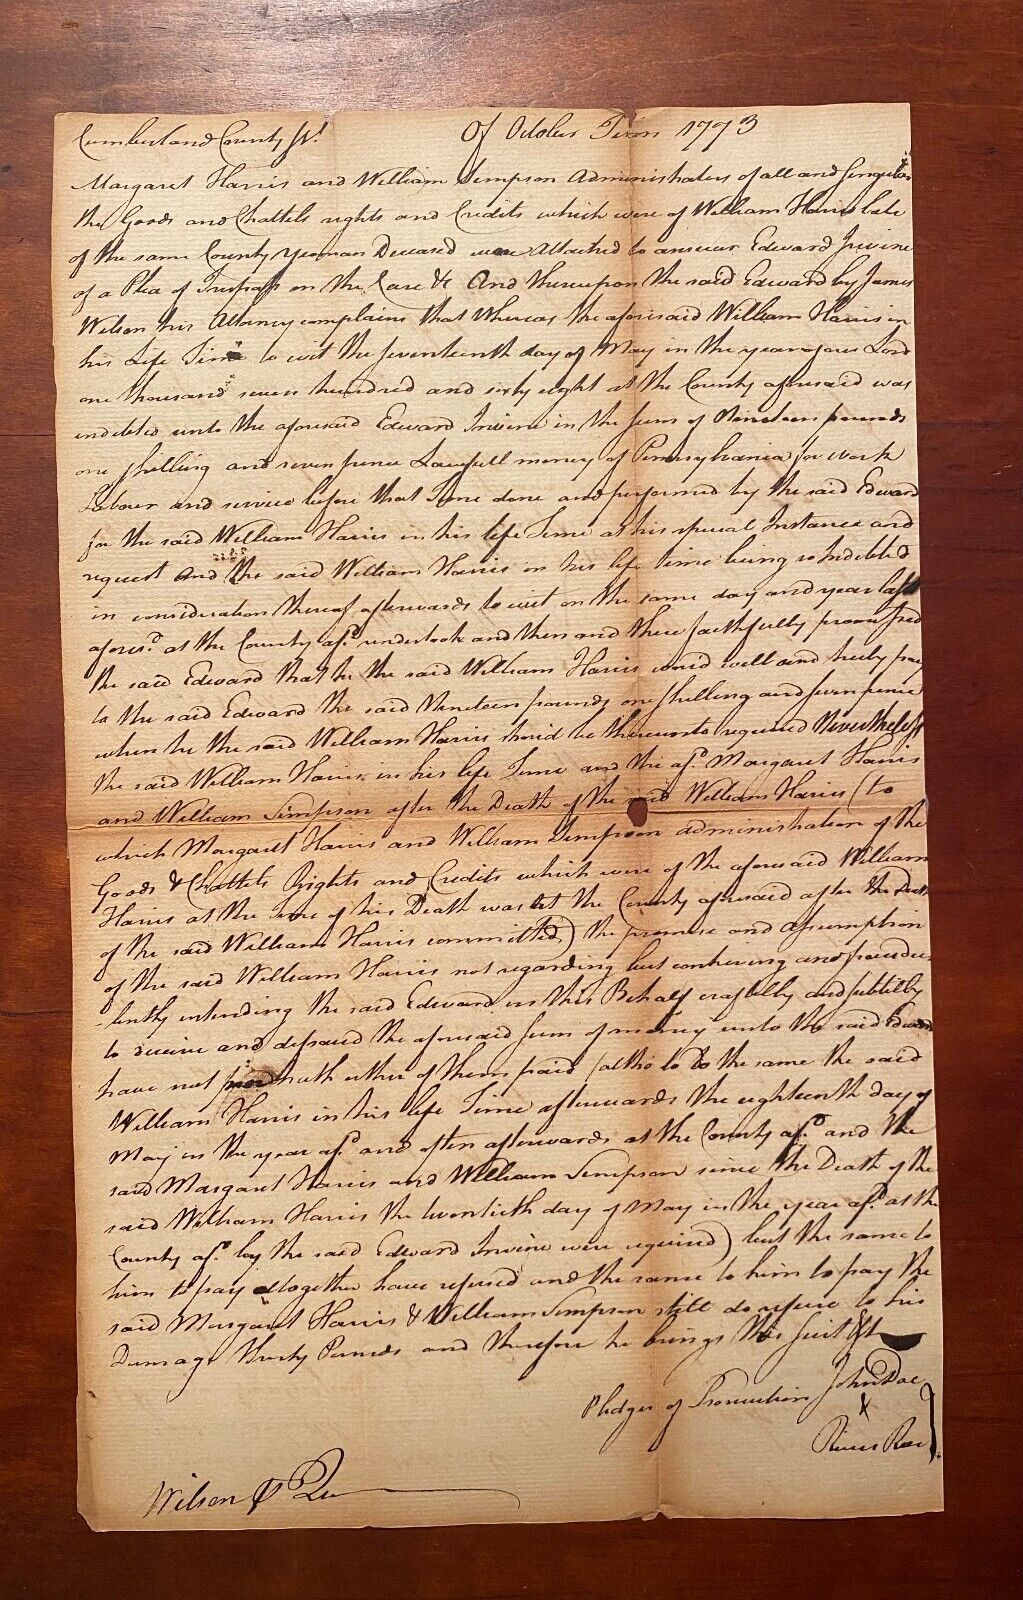 Cumberland County Ss. Of October Term 1773
Margaret Harris and William Simpson Administrators of all and Singular
the Goods and Chattels rights and Credits which were of William Harris late
of the same County yeoman Deceased were Attached to answer Edward Irvine
of a Plea of Trespass on the Case &c And thereupon the said Edward by James
Wilson his Attorney complains that Whereas the aforesaid William Harris in
his Life Time to wit the seventeenth day of May in the year of our Lord
one thousand seven hundred and sixty eight at the County aforesaid was
indebted unto the aforesaid Edward Irvine in the sum of Nineteen pounds
one shilling and seven pence Lawfull money of Pennsylvania for work
Labour and service before that Time done and performed by the said Edward
for the said William Harris in his life Time at his special Instance and
request And the said William Harris in his life time being so Indebted
in consideration thereof afterwards to wit on the same day and year last
afores.d at the County af.d undertook and then and there faithfully promised
the said Edward that he the said William Harris would well and truly pay
to the said Edward the said Nineteen pounds one shilling and seven pence
when he the said William Harris should be thereunto required Nevertheless
the said William Harris in his life Time and the af.d Margaret Harris
and William Simpson after the Death of the said William Harris (to
which Margaret Harris and William Simpson administration of the
Goods & Chattels Rights and Credits which were of the aforesaid William
Harris at the Time of his Death was at the County aforesaid after the Death
of the said William Harris committed) the promise and assumption
of the said William Harris not regarding but contriving and fraudu-
-lently intending the said Edward in this Behalf craftilly and subtilly
to deceive and defraud the aforesaid sum of money unto the said Edward
have not hath either of them paid (altho to do the same the said
William Harris in his life Time afterwards the eighteenth day of
May in the year af.d and often afterwards at the County af.d and the
said Margaret Harris and William Simpson since the Death of the
said William Harris the twentieth day of May in the year af.d at the
County af.d by the said Edward Irvine were required) but the same to
him to pay altogether have refused and the same to him to pay the
said Margaret Harris & William Simpson still do refuse to his
Damage Thirty Pounds and therefore he brings this suit &c
Pledges of Prosecution John Doe
&
Richd Roe
Wilson p Quer